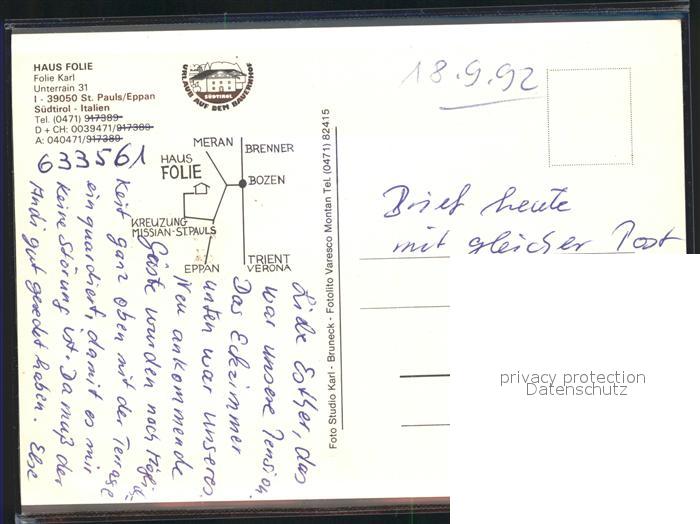 HAUS FOLIE
Folie Karl
Unterrain 31
I - 39050 St. Pauls/Eppan
Südtirol - Italien
Tel. (0471) 917389
D + CH: 0039471/917389
A: 040471/917389
633561
URLAUB AUF DEM BAUERNHOF
SÜDTIROL
MERAN
BRENNER
HAUS
FOLIE
BOZEN
KREUZUNG
MISSIAN-ST.PAULS
EPPAN
TRIENT
VERONA
Liebe Esther, das
war unsere Pension
Das Eckzimmer
unten war unseres.
Neu ankommende
Gäste wurden nach Möglich
keit ganz oben mit der Terrasse
einquardiert, damit es mir
keine Störung ist. Da muß der
Andi gut geredet haben. Else
Foto Studio Karl - Bruneck - Fotolito Varesco Montan Tel (0471) 82415
18.9.92
Brief heute
mit gleicher Post
privacy protection
Datenschutz